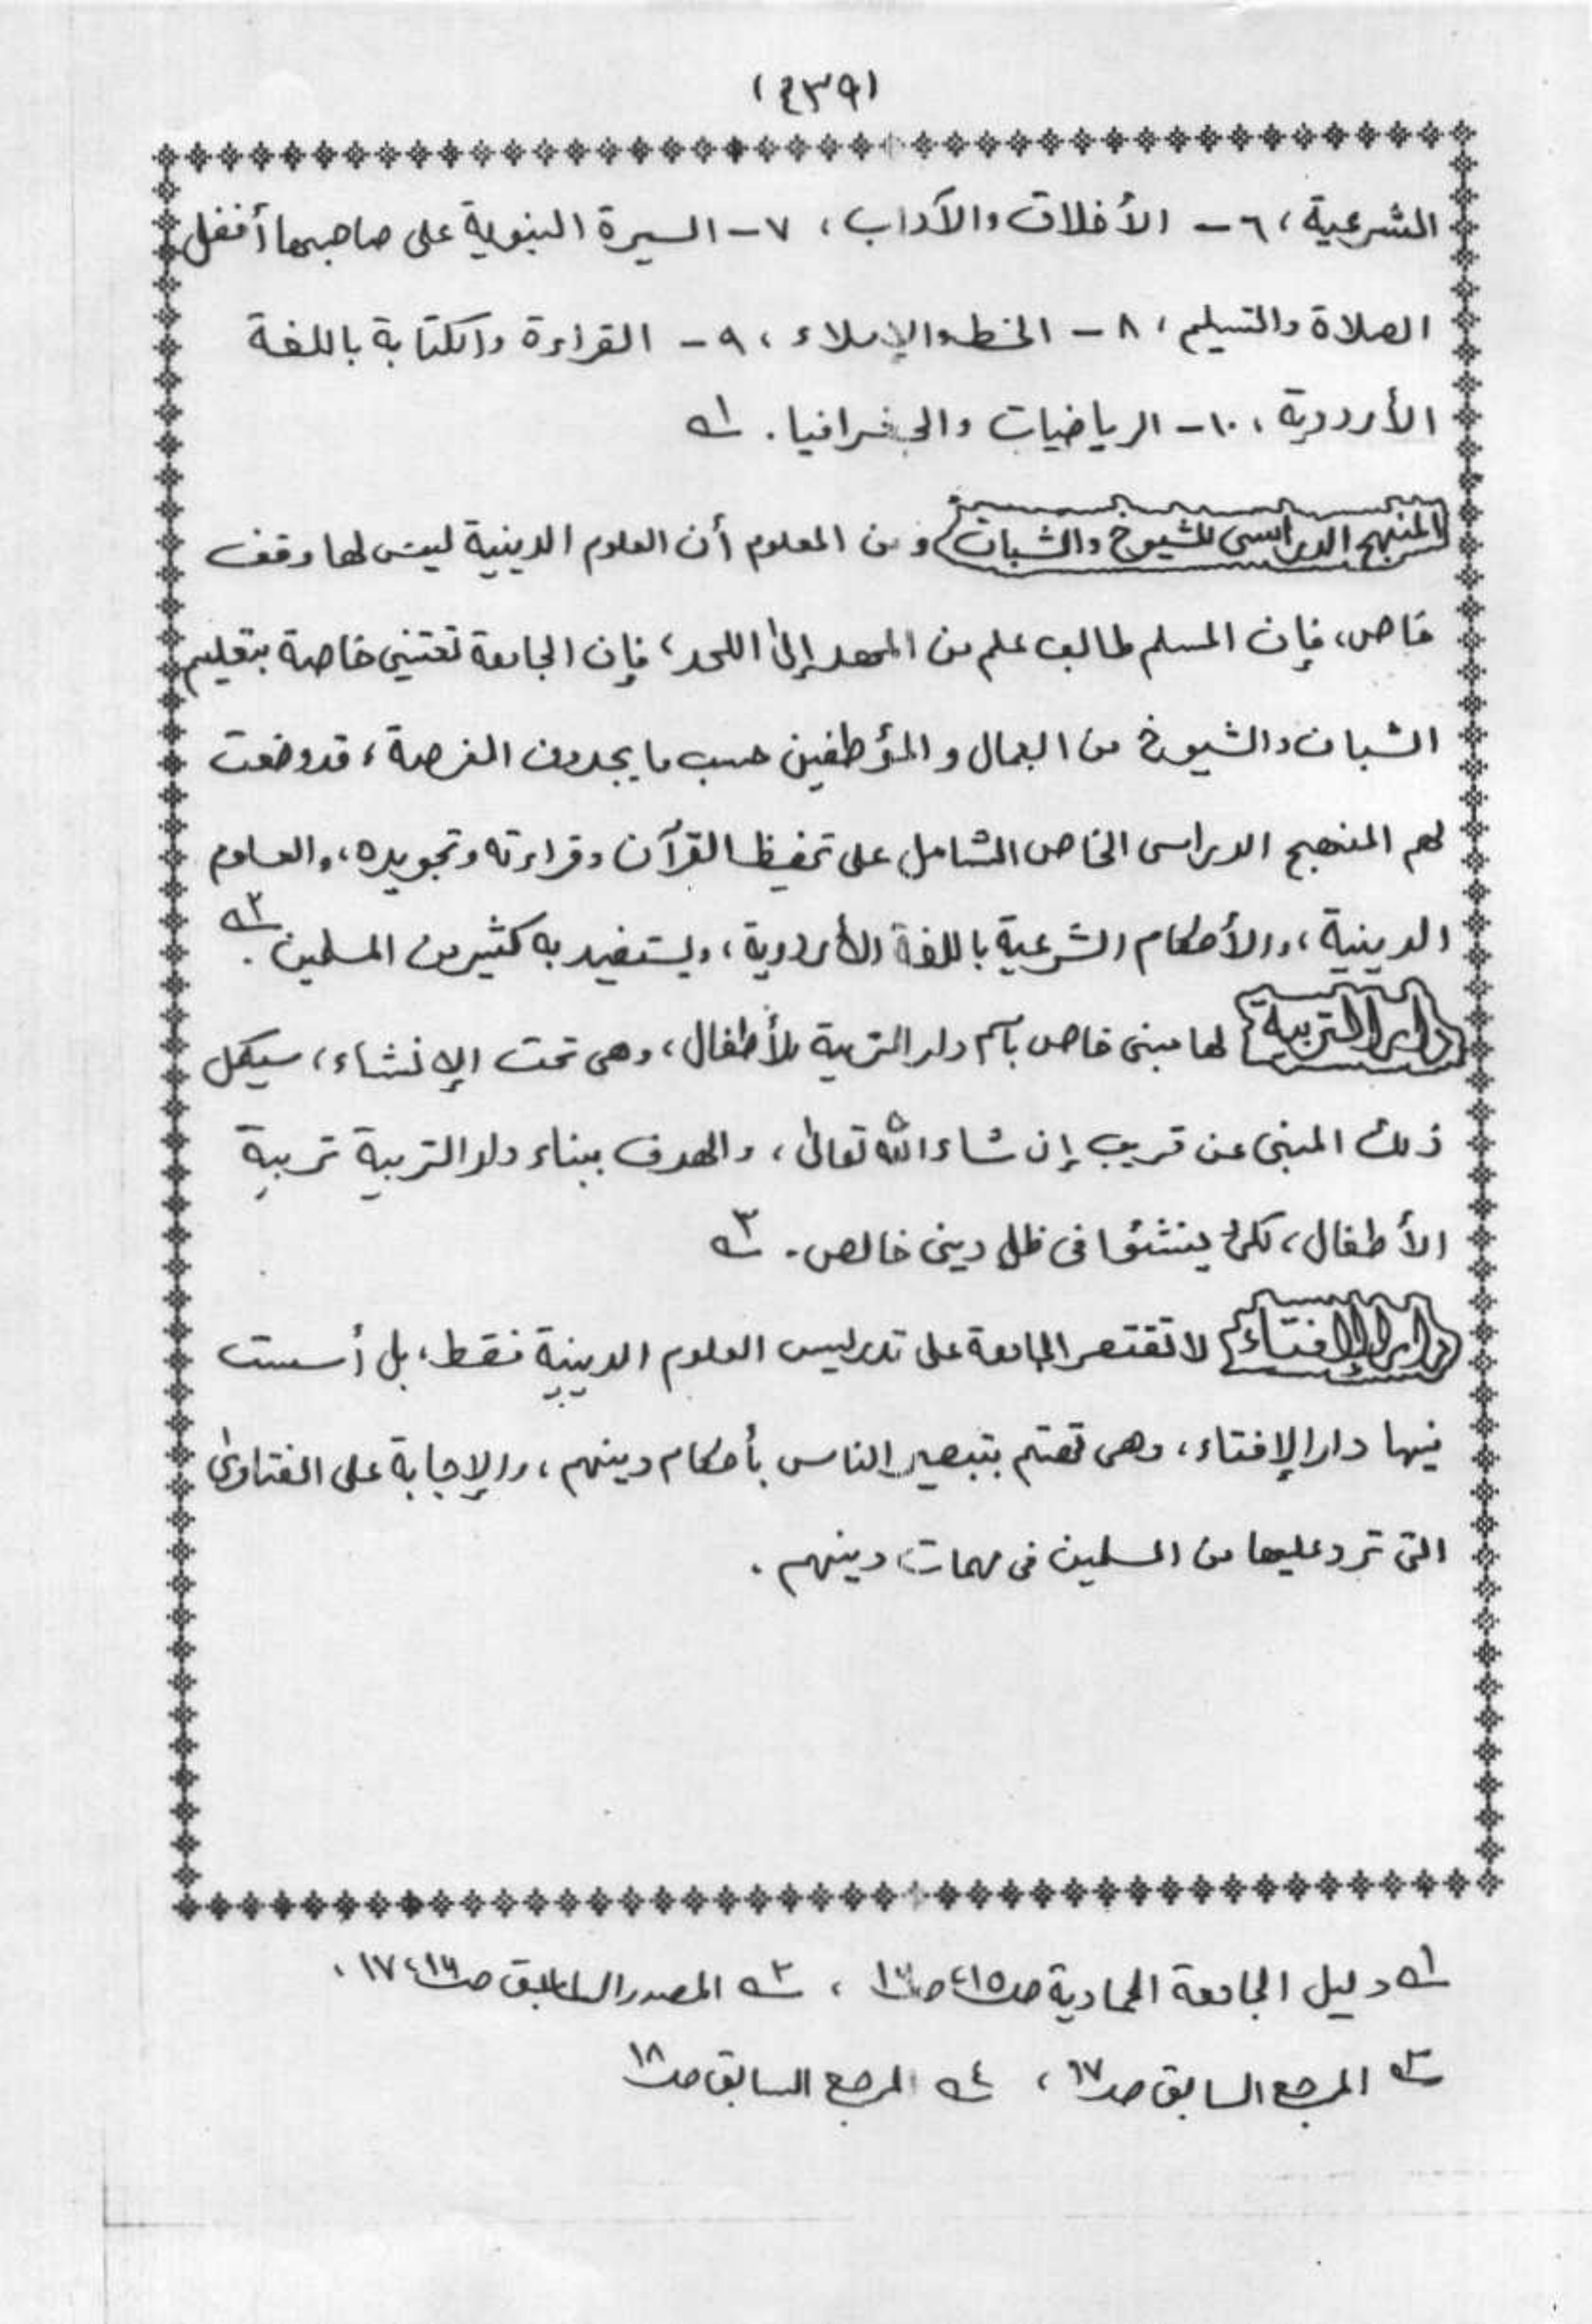 (٤٣٩)
الشرعية، ٦- الأخلاق والآداب، ٧- السيرة النبوية على صاحبها أفضل
الصلاة والتسليم، ٨- الخط والإملاء، ٩- القراءة والكتابة باللغة
الأردوية، ١٠- الرياضيات والجغرافيا. ١ـه
المنهج الدراسى للشيوخ والشبان ومن المعلوم أن العلوم الدينية ليس لها وقف
خاص، فإن المسلم طالب علم من المهد إلى اللحد، فإن الجامعة تعتني خاصة بتعليم
الشبان والشيوخ من العمال والمؤظفين حسب ما يجدون الفرصة، قد وضعت
لهم المنهج الدراسى الخاص الشامل على تحفيظ القرآن وقراءته وتجويده، والعلوم
الدينية، والأحكام الشرعية باللغة الأردوية، ويستفيد به كثير من المسلمين. ٢ـه
دار التربية لها مبنى خاص بآسم دار التربية للأطفال، وهى تحت الإنشاء، سيكمل
ذلك المبنى عن قريب إن شاء الله تعالى، والهدف ببناء دار التربية تربية
الأطفال، لكى ينشئوا فى ظل دينى خالص. ٣ـه
دار الإفتاء لا تقتصر الجامعة على تدريس العلوم الدينية فقط، بل أسست
فيها دار الإفتاء، وهى تهتم بتبصير الناس بأحكام دينهم، والإجابة على الفتاوى
التى ترد عليها من المسلمين فى مهمات دينهم.
١ـه دليل الجامعة الحمادية صـ١٥، صـ١٦، ٢ـه المصدر السابق صـ١٦، ١٧.
٣ـه المرجع السابق صـ١٧، ٤ـه المرجع السابق صـ١٨